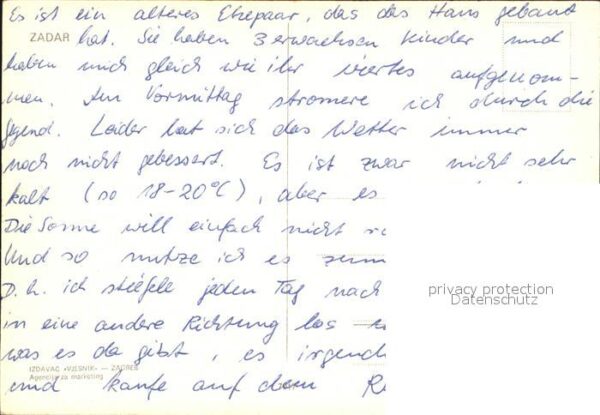 Es ist ein älteres Ehepaar, das das Haus gebaut
ZADAR
hat. Sie haben 3 erwachsen Kinder und
haben mich gleich wie ihr viertes aufgenom-
men. Am Vormittag stromere ich durch die
Gegend. Leider hat sich das Wetter immer
noch nicht gebessert. Es ist zwar nicht sehr
kalt (so 18-20°C), aber es
Die Sonne will einfach nicht
Und so nutze ich es zum
D.h. ich stiefele jeden Tag nach
in eine andere Richtung los
was es da gibt, es irgend
und kaufe auf dem
IZDAVAČ »VJESNIK« — ZAGREB
Agencija za marketing
privacy protection
Datenschutz